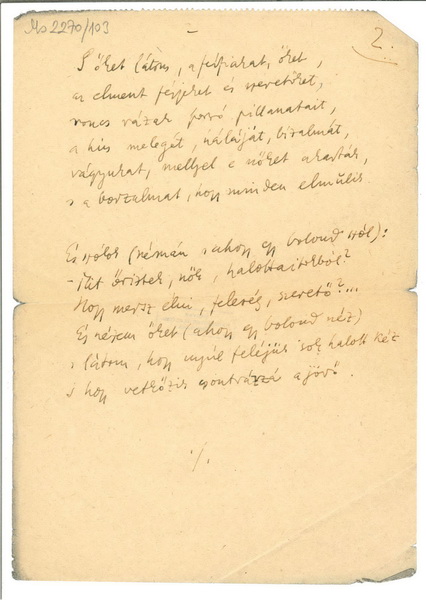 Ms 2270/103
2.
S őket látom, a férfiakat, őket,
az elment férjeket és szeretőket,
roncs vázak forró pillanatait,
a hús melegét, háláját, bizalmát,
vágyukat, mellyel e nőket akarták,
s a borzalmat, hogy minden elmúlik.
És szólok (némán s ahogy egy bolond szól):
- Mit őriztek, nők, halottaitokból?
Hogy mersz élni, feleség, szerető?...
És nézem őket (ahogy egy bolond néz)
s látom, hogy nyúl feléjük sok halott kéz
s hogy vetkőzik csontvázzá a jövő.
./.